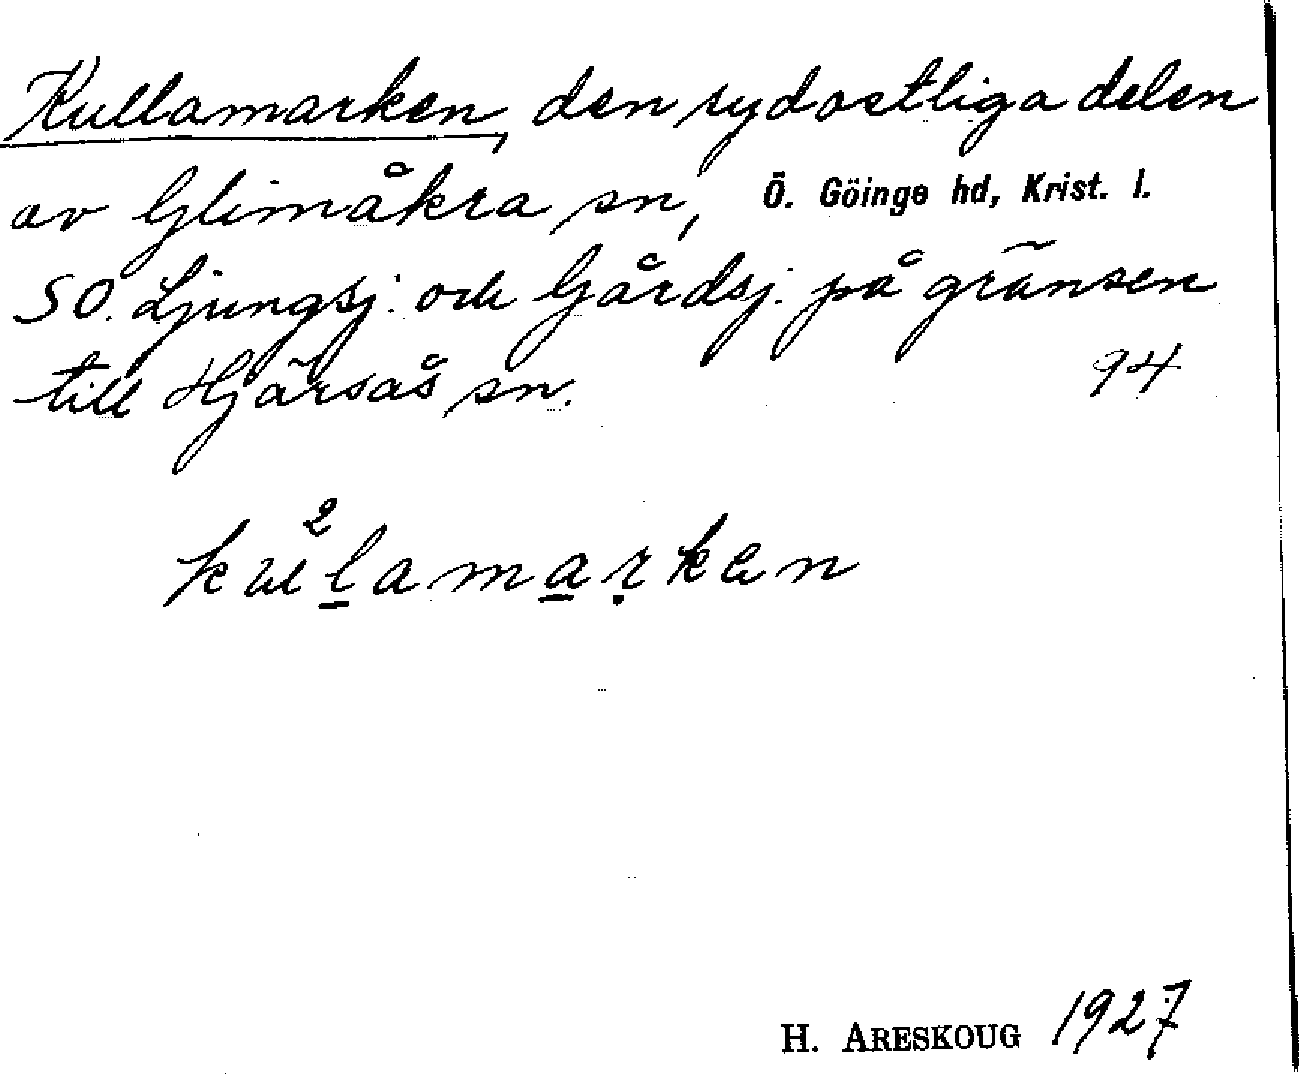 Kullamarken, den sydostliga delen
av Glimåkra sn, Ö. Göinge hd, Krist. l.
SO. Ljungsj. och Gårdsj. på gränsen
till Hjärsås sn. 94
2
kulamarken
H. ARESKOUG 1927